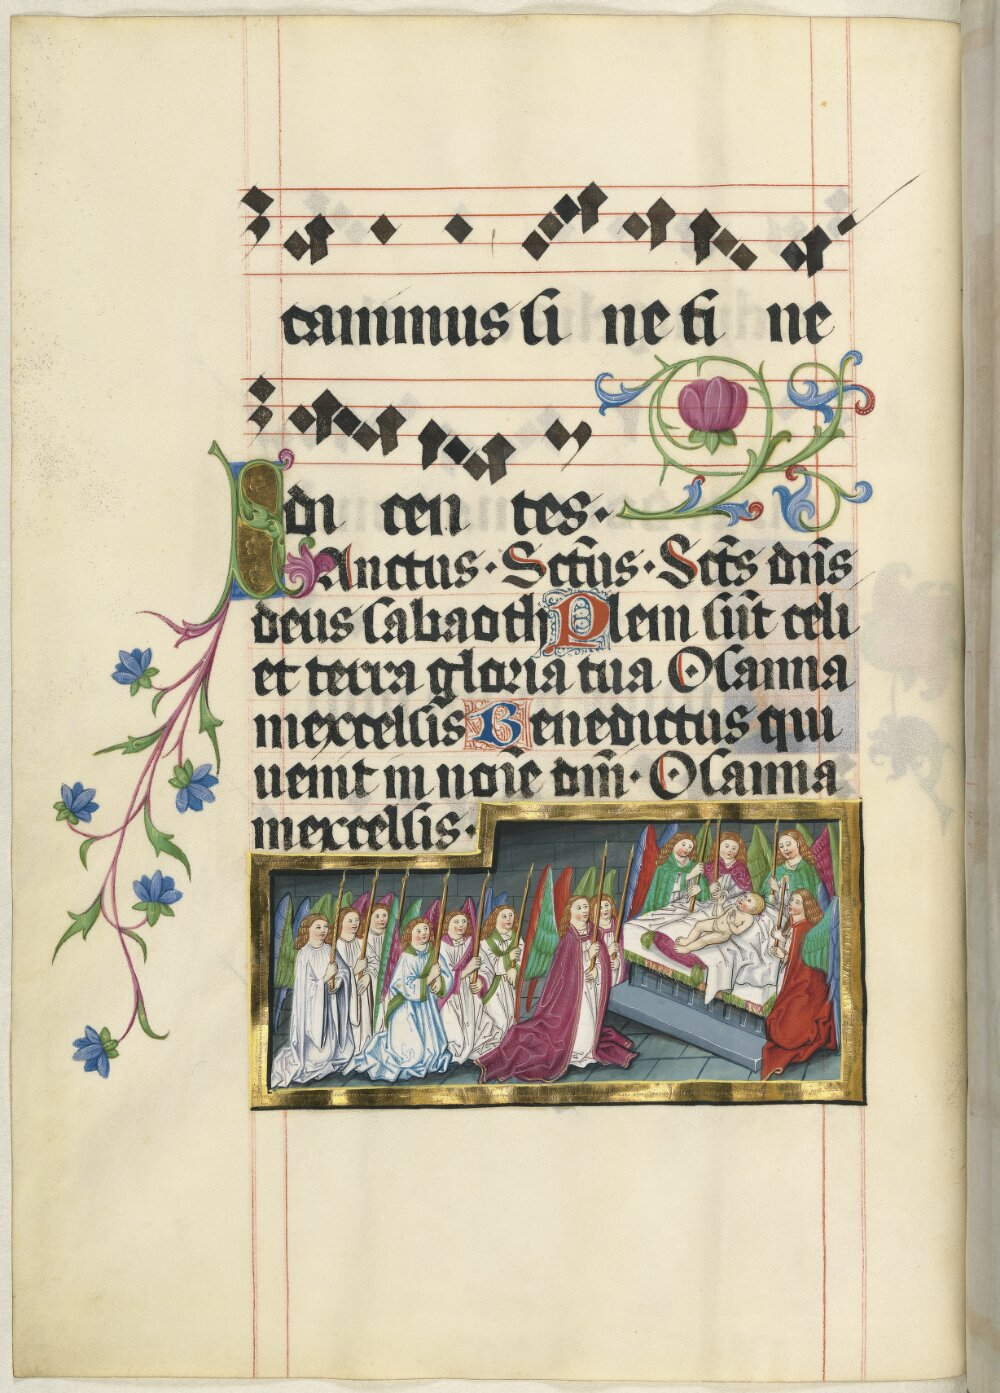 canimus si ne fi ne
di cen tes.
Sanctus · Sctūs · Sctūs dn̄s
deus sabaoth Plem sūt celi
et terra gloria tua Osanna
inexcelsis Benedictus qui
uenit in noīe dni · Osanna
inexcelsis ·